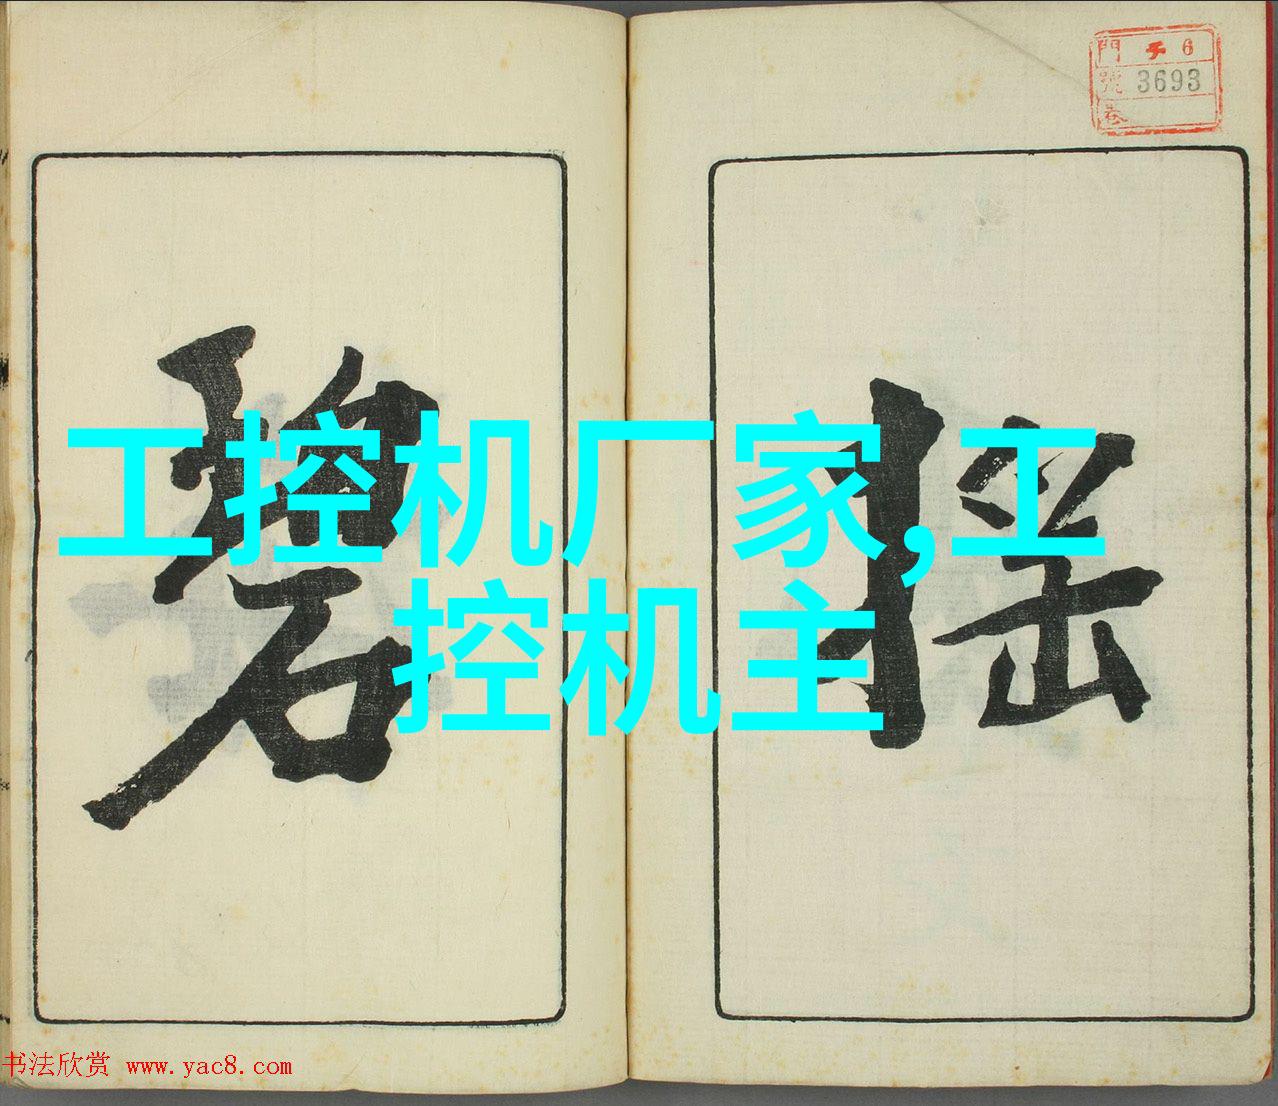 門 子 6
號 3693
卷
搖
碧
工控机厂家,工
控机主
书法欣赏 www.yac8.com